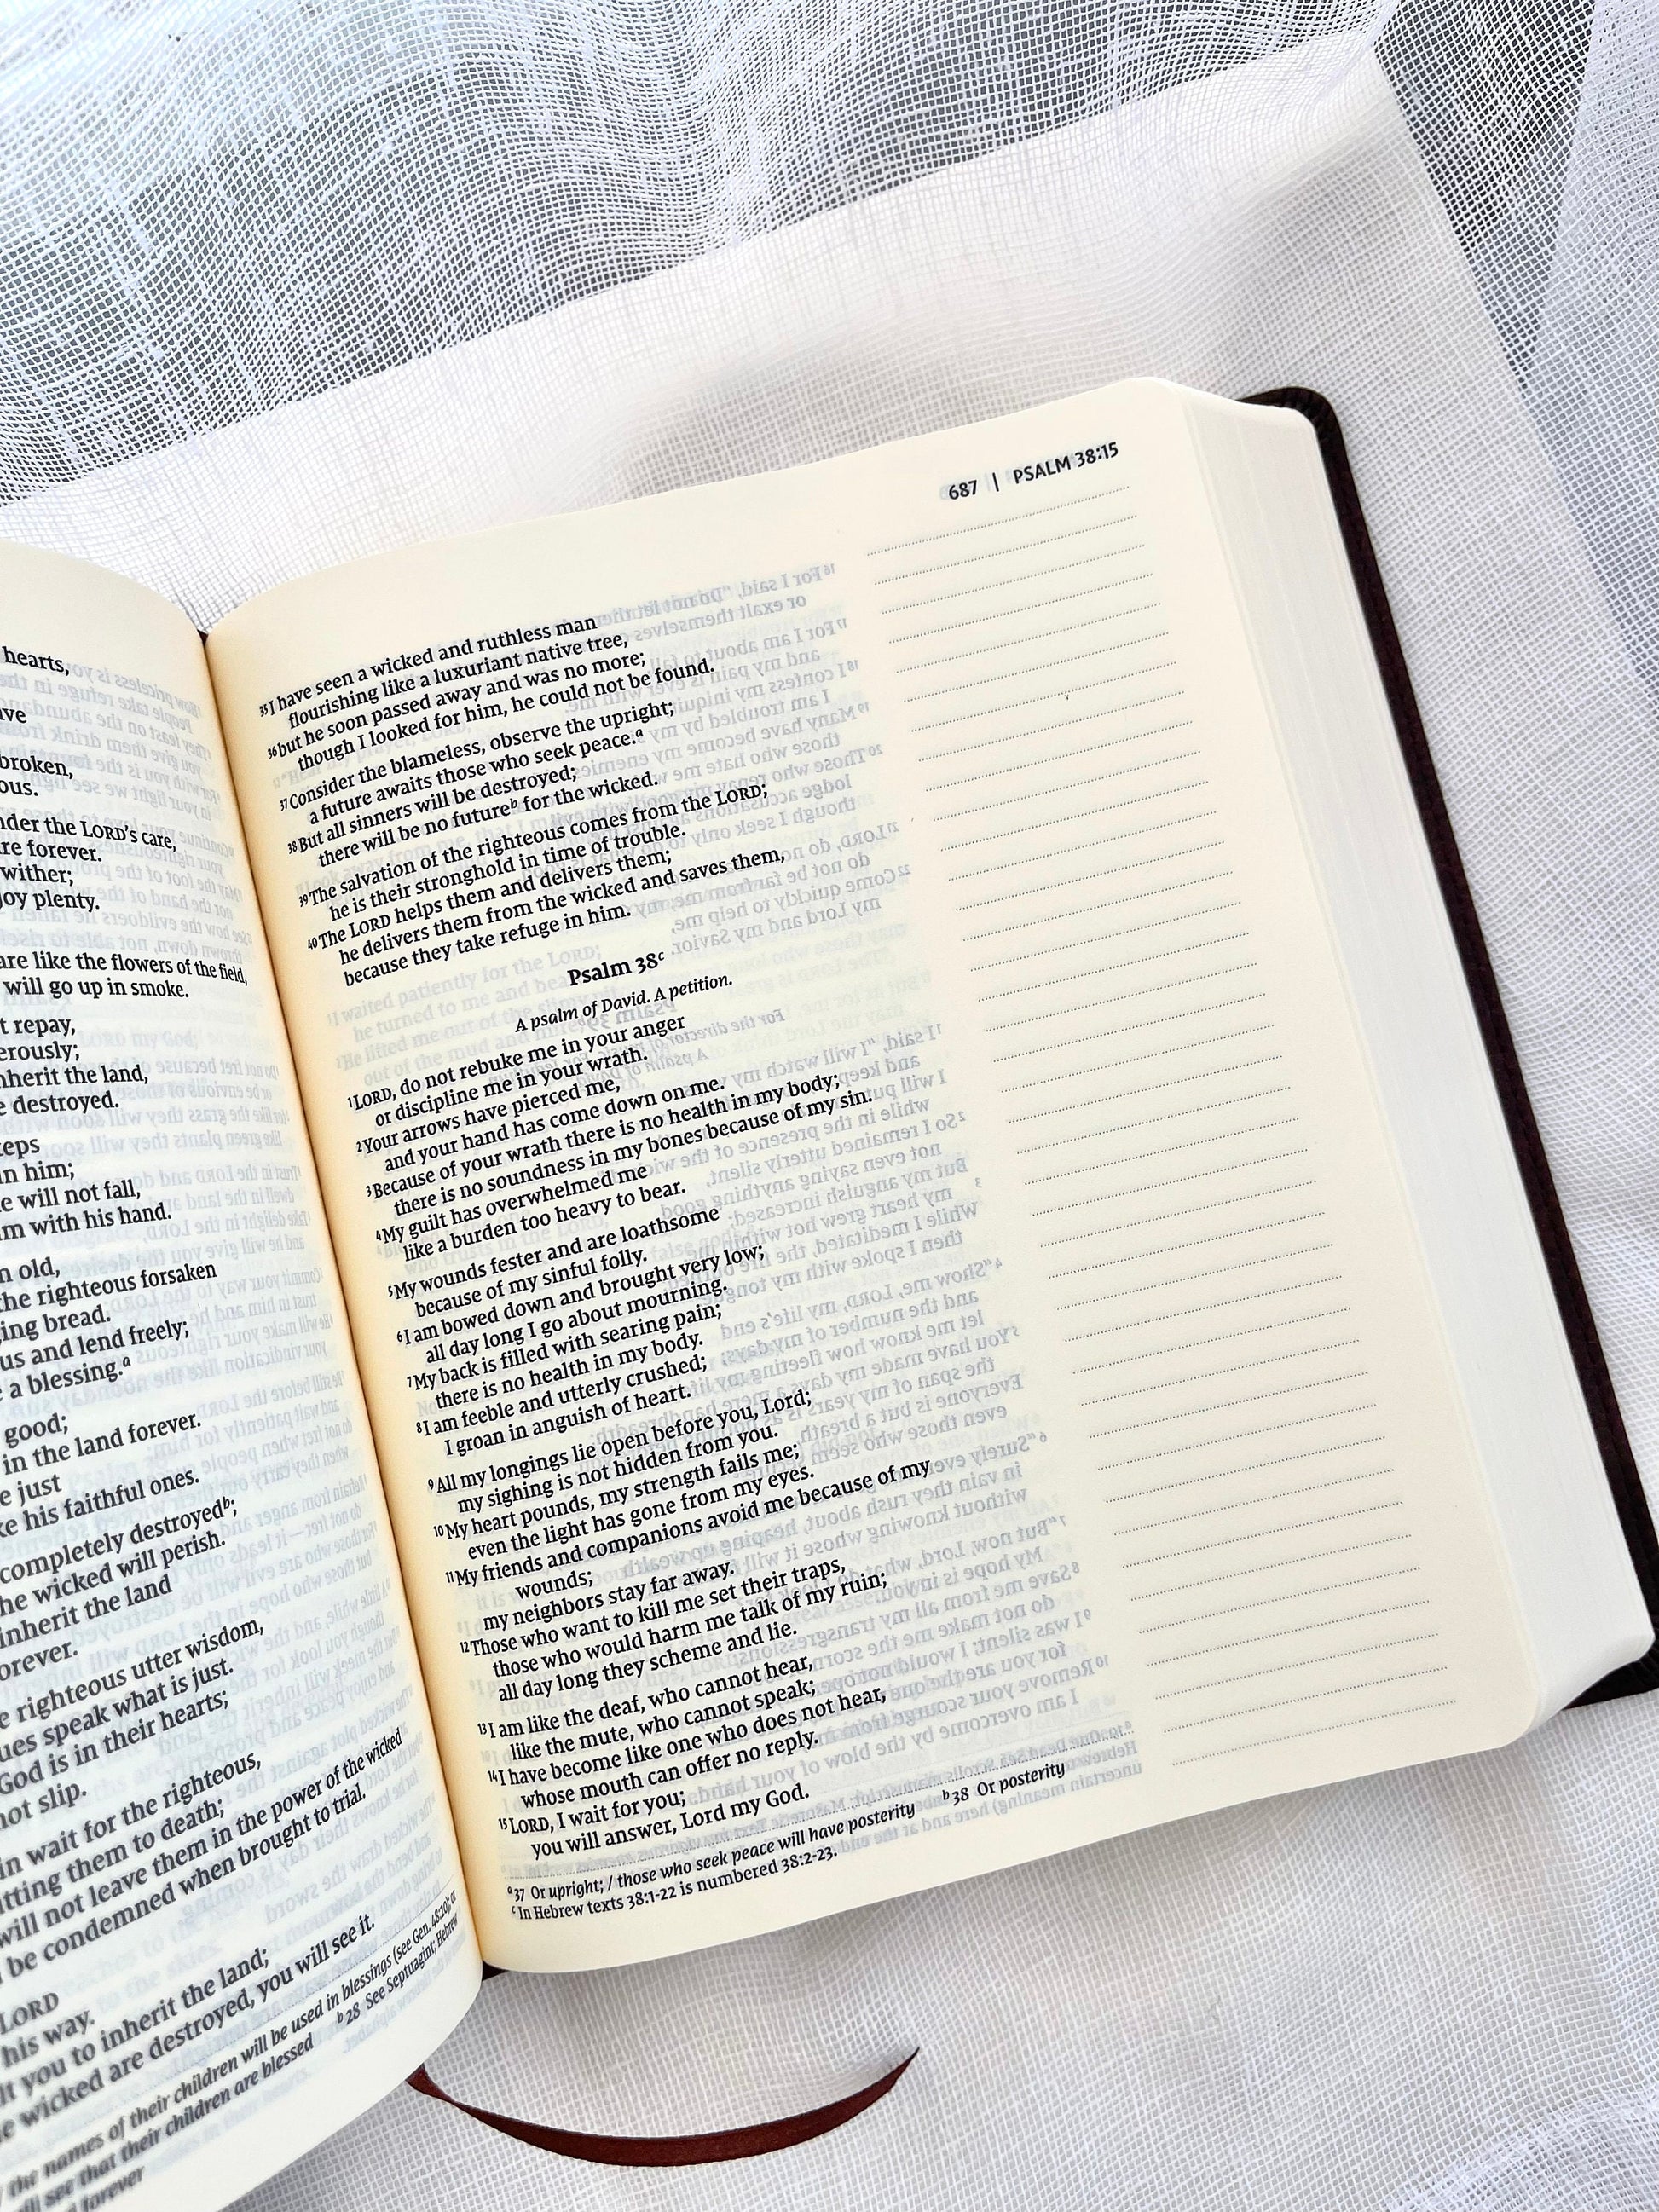 hearts,
broken,
LORD's care,
are forever.
wither;
enjoy plenty.
are like the flowers of the field,
will go up in smoke.
repay,
the land,
destroyed.
in him;
will not fall,
with his hand.
old,
the righteous forsaken
bread.
and lend freely;
a blessing.ᵃ
good;
in the land forever.
just
his faithful ones.
completely destroyedᵇ;
the wicked will perish.
inherit the land
righteous utter wisdom,
speak what is just.
God is in their hearts;
not slip.
in wait for the righteous,
them to death;
will not leave them in the power of the wicked
be condemned when brought to trial.
LORD
his way.
you to inherit the land;
wicked are destroyed, you will see it.
the names of their children will be used in blessings (see Gen. 48:20); or
see that their children are blessed ᵇ28 See Septuagint; Hebrew
forever
687 | PSALM 38:15
³⁵I have seen a wicked and ruthless man
flourishing like a luxuriant native tree,
³⁶but he soon passed away and was no more;
though I looked for him, he could not be found.
³⁷Consider the blameless, observe the upright;
a future awaits those who seek peace.ᵃ
³⁸But all sinners will be destroyed;
there will be no futureᵇ for the wicked.
³⁹The salvation of the righteous comes from the LORD;
he is their stronghold in time of trouble.
⁴⁰The LORD helps them and delivers them;
he delivers them from the wicked and saves them,
because they take refuge in him.
Psalm 38ᶜ
A psalm of David. A petition.
¹LORD, do not rebuke me in your anger
or discipline me in your wrath.
²Your arrows have pierced me,
and your hand has come down on me.
³Because of your wrath there is no health in my body;
there is no soundness in my bones because of my sin.
⁴My guilt has overwhelmed me
like a burden too heavy to bear.
⁵My wounds fester and are loathsome
because of my sinful folly.
⁶I am bowed down and brought very low;
all day long I go about mourning.
⁷My back is filled with searing pain;
there is no health in my body.
⁸I am feeble and utterly crushed;
I groan in anguish of heart.
⁹All my longings lie open before you, Lord;
my sighing is not hidden from you.
¹⁰My heart pounds, my strength fails me;
even the light has gone from my eyes.
¹¹My friends and companions avoid me because of my
wounds;
my neighbors stay far away.
¹²Those who want to kill me set their traps,
those who would harm me talk of my ruin;
all day long they scheme and lie.
¹³I am like the deaf, who cannot hear,
like the mute, who cannot speak;
¹⁴I have become like one who does not hear,
whose mouth can offer no reply.
¹⁵LORD, I wait for you;
you will answer, Lord my God.
ᵃ37 Or upright; / those who seek peace will have posterity ᵇ38 Or posterity
ᶜIn Hebrew texts 38:1-22 is numbered 38:2-23.